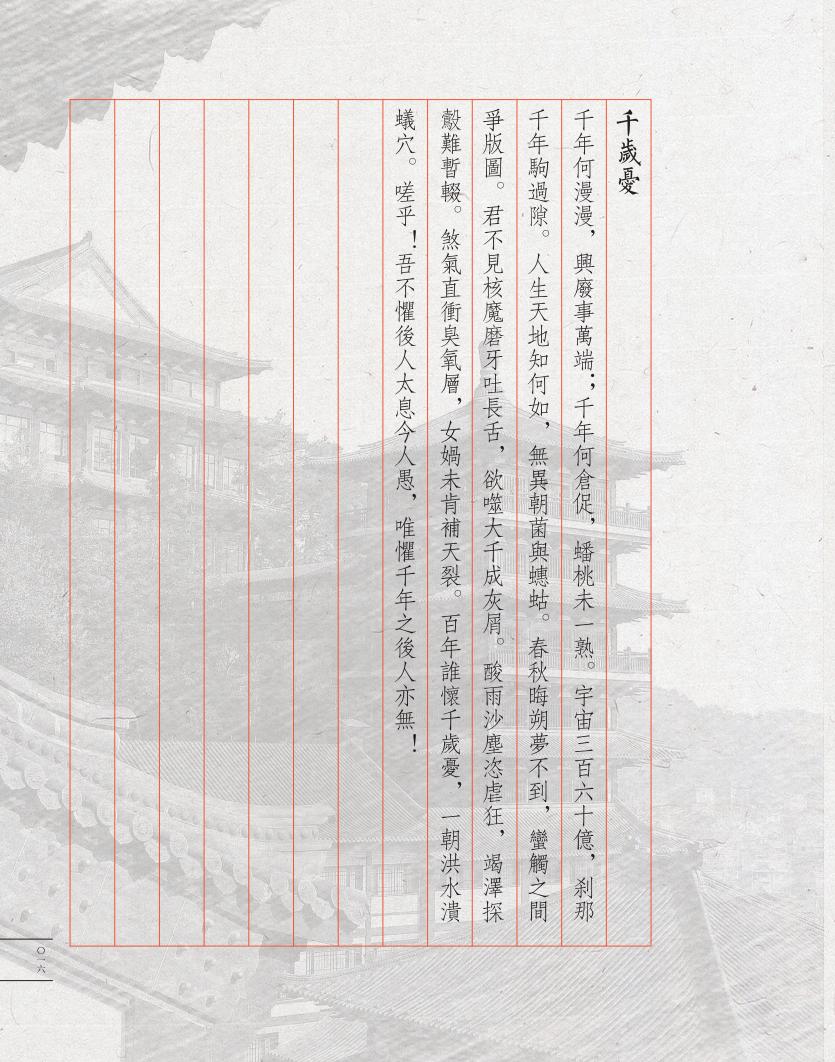 千歲憂
千年何漫漫，興廢事萬端；千年何倉促，蟠桃未一熟。宇宙三百六十億，刹那
千年駒過隙。人生天地知何如，無異朝菌與蟪蛄。春秋晦朔夢不到，蠻觸之間
爭版圖。君不見核魔磨牙吐長舌，欲噬大千成灰屑。酸雨沙塵恣虐狂，竭澤探
鷇難暫輟。煞氣直衝臭氧層，女媧未肯補天裂。百年誰懷千歲憂，一朝洪水潰
蟻穴。嗟乎！吾不懼後人太息今人愚，唯懼千年之後人亦無！
〇一六